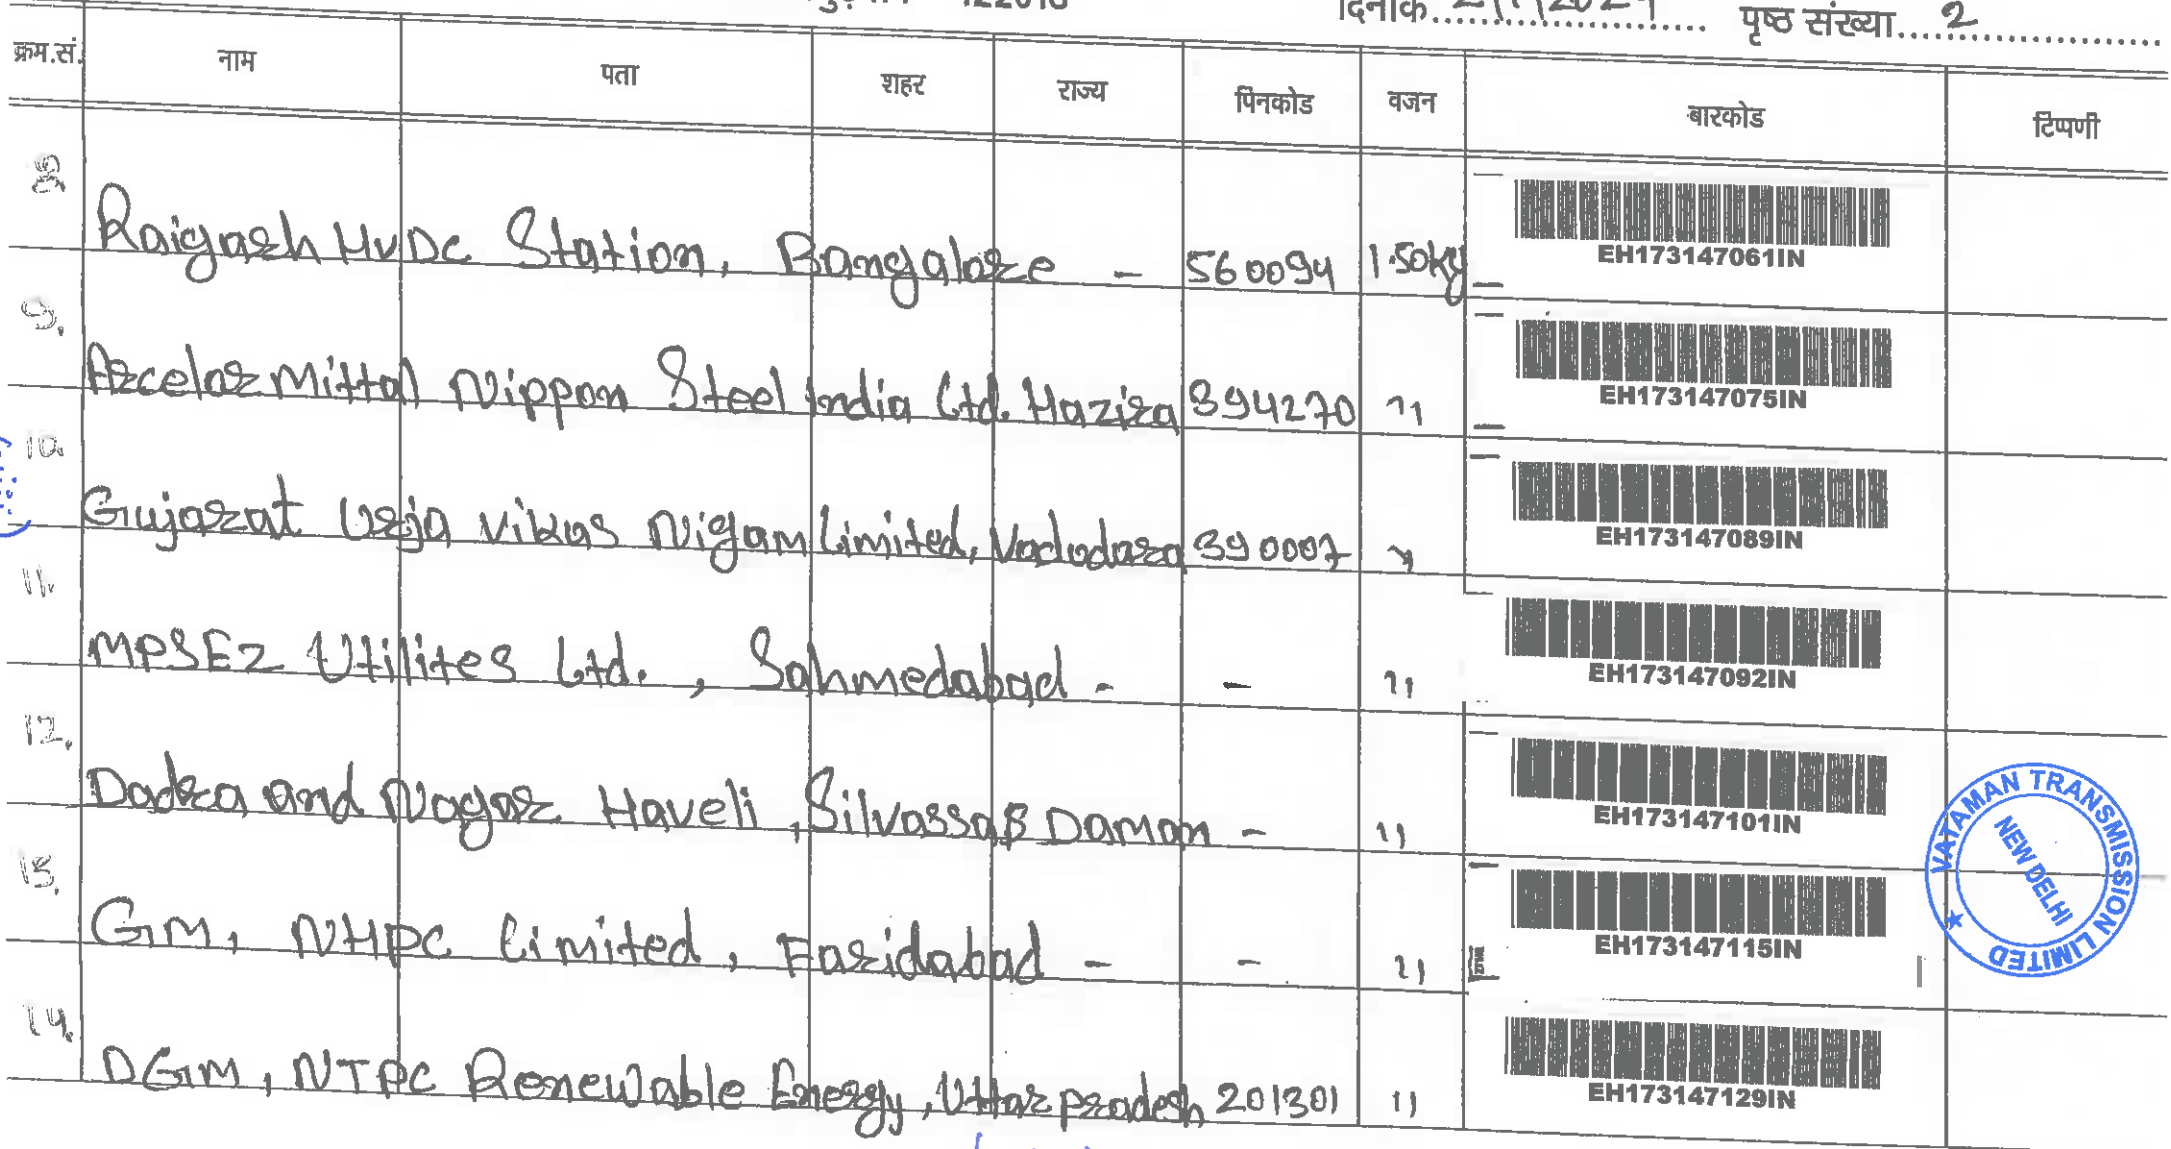 पृष्ठ संख्या.....2
क्रम.सं. नाम पता शहर राज्य पिनकोड वजन बारकोड टिप्पणी
8. Raigarh HVDC Station, Bangalore - 560094 1.50kg EH173147061IN
9. Arcelor Mittal Nippon Steel India Ltd. Hazira 394270 11 EH173147075IN
10. Gujarat Urja Vikas Nigam Limited, Vadodara 390007 11 EH173147089IN
11. MPSEZ Utilites Ltd., Sahmedabad - - 11 EH173147092IN
12. Dadra and Nagar Haveli, Silvassa & Daman - 11 EH173147101IN
VATAMAN TRANSMISSION LIMITED
NEW DELHI
13. GM, NHPC Limited, Faridabad - - 11 EH173147115IN
14. DGM, NTPC Renewable Energy, Uttar pradesh 201301 11 EH173147129IN